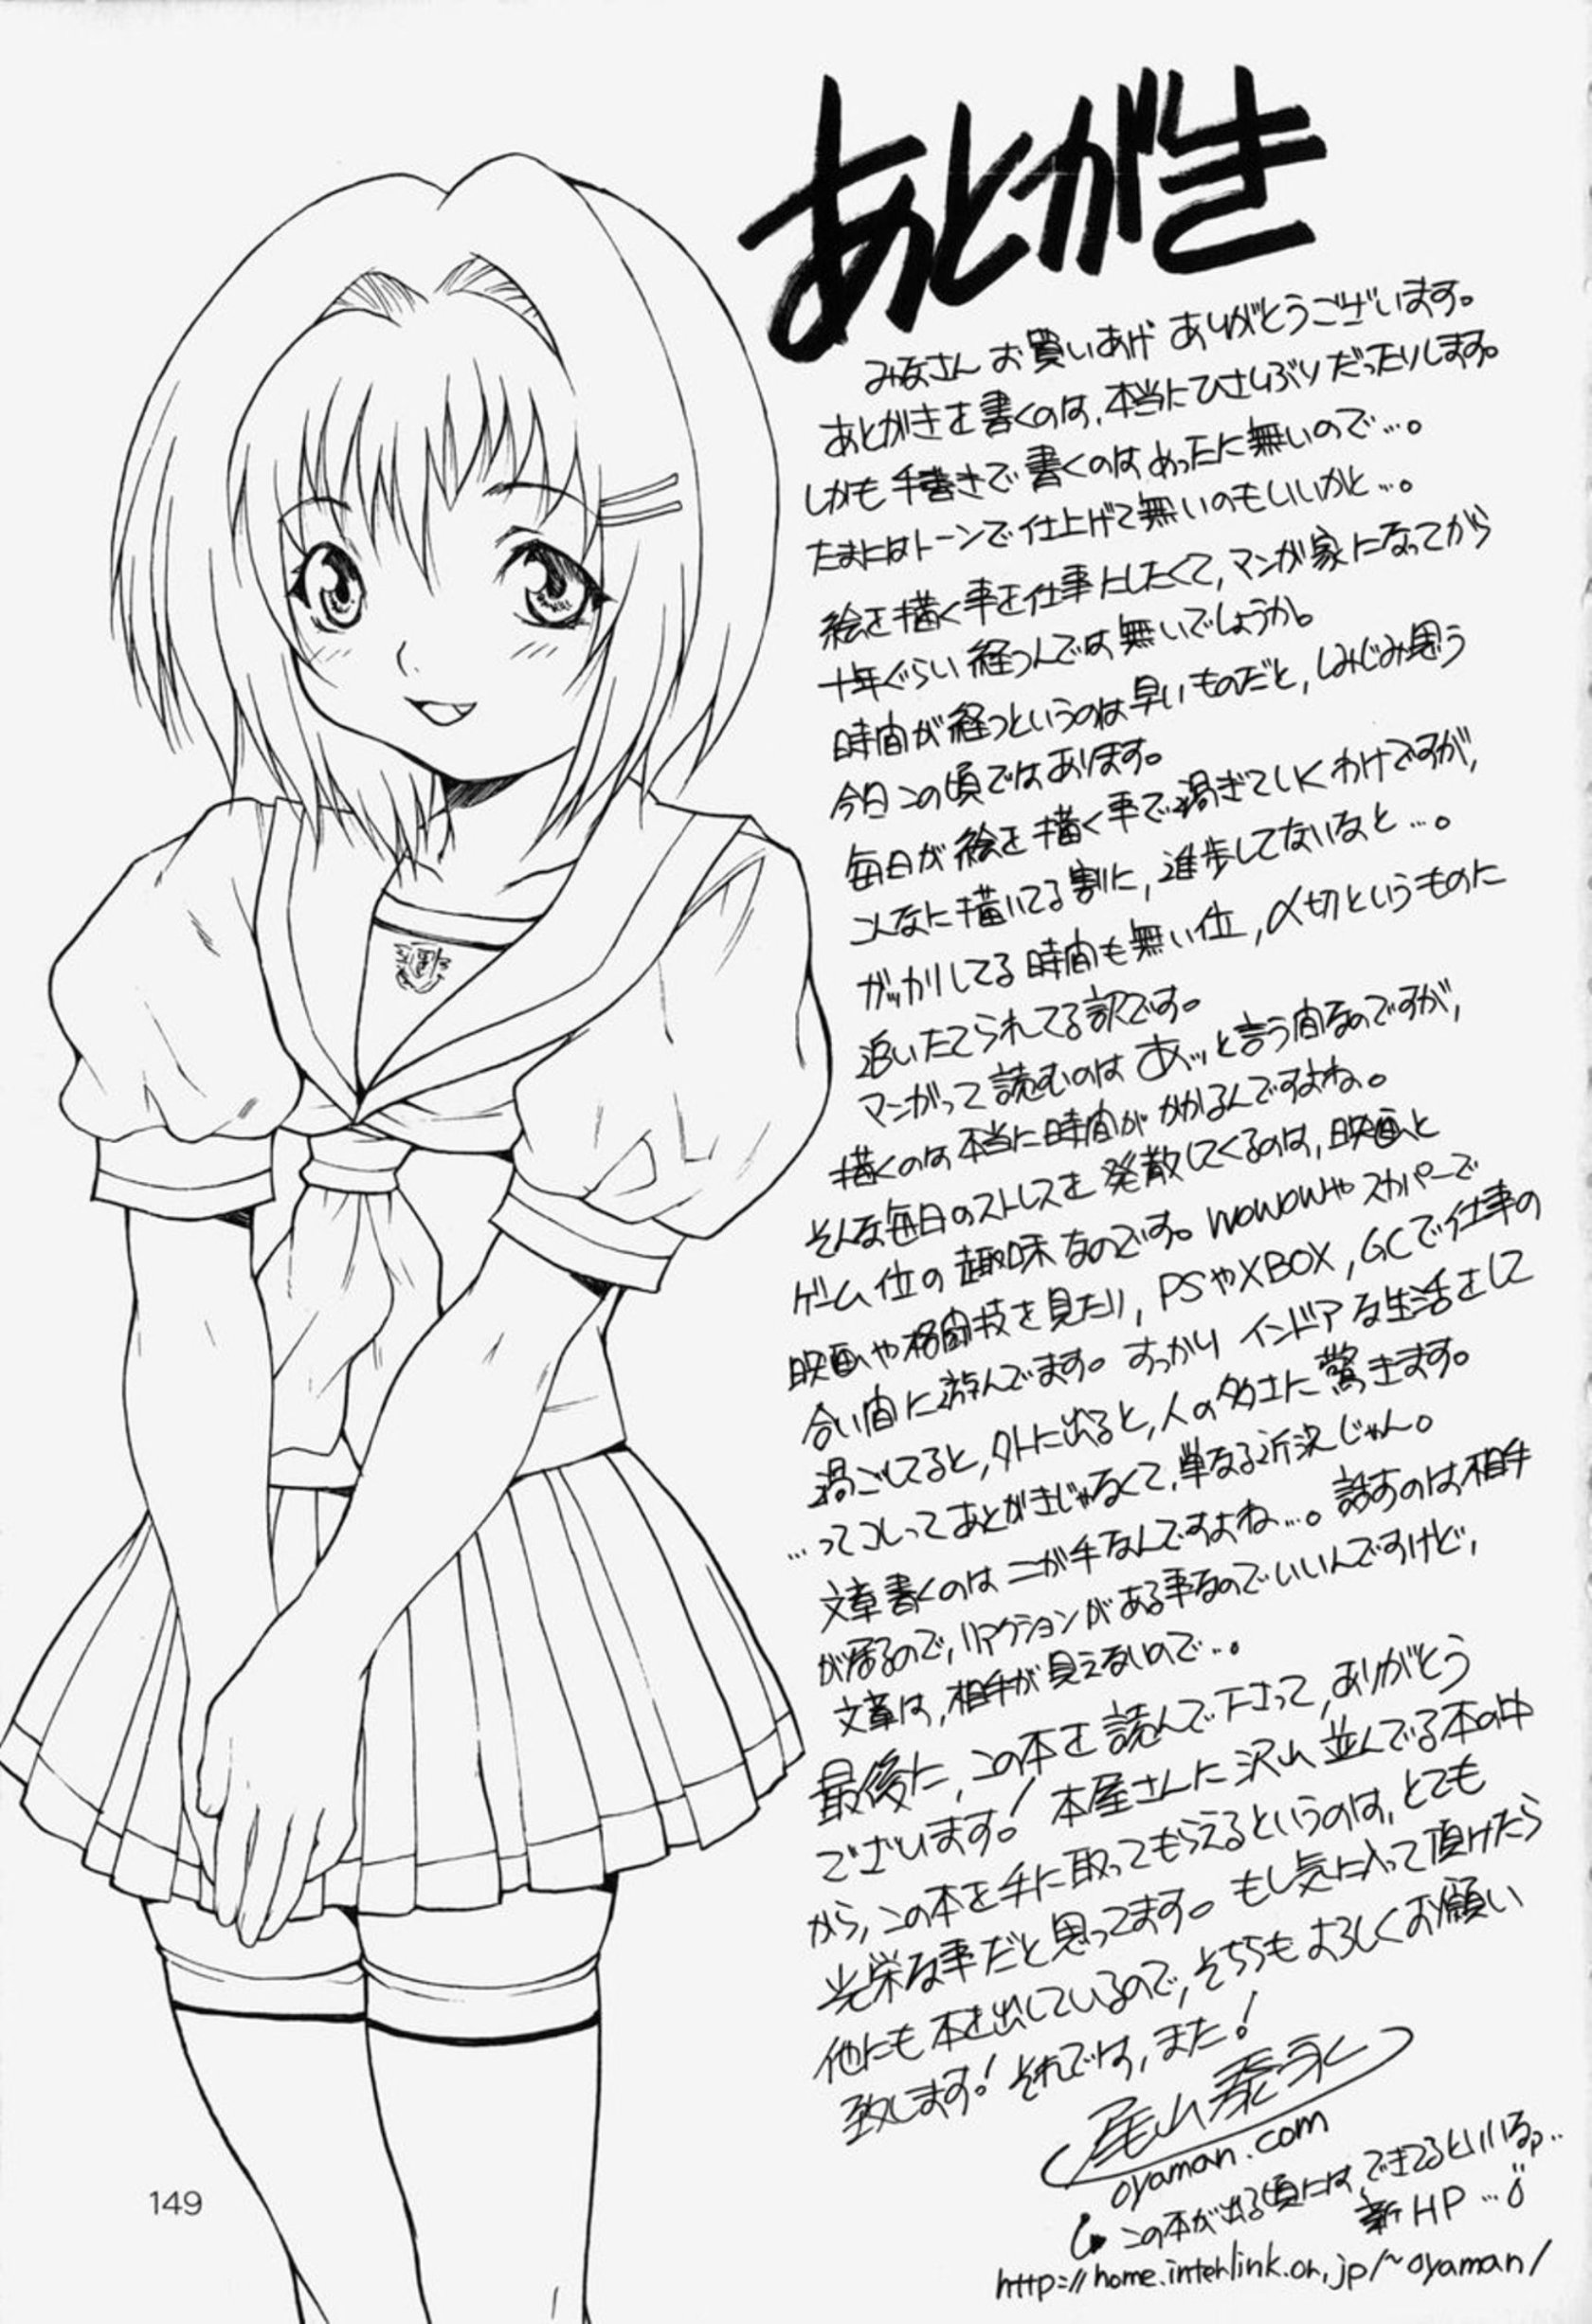 あとがき
みなさんお買いあげありがとうございます。
あとがきを書くのは、本当にひさしぶりだったりします。
しかも手書きで書くのはめったに無いので…。
たまにはトーンで仕上げて無いのもいいかと…。
絵を描く事を仕事にしたくて、マンガ家になってから
十年ぐらい経つんでは無いでしょうか。
時間が経つというのは早いものだと、しみじみ思う
今日この頃ではあります。
毎日が絵を描く事で過ぎていくわけですが、
こんなに描いてる割に、進歩してないなと…。
ガッカリしてる時間も無い位、〆切というものに
追いたてられてる訳です。
マンガって読むのはあッと言う間なのですが、
描くのは本当に時間がかかるんですよね。
そんな毎日のストレスを発散してくるのは、映画と
ゲーム位の趣味なのです。WOWOWやスカパーで
映画や格闘技を見たり、PSやXBOX、GCで仕事の
合い間に遊んでます。すっかりインドアな生活をして
過ごしてると、外に出ると、人の多さに驚きます。
…ってコレってあとがきじゃなくて、単なる近況じゃん。
文章書くのはニが手なんですよね…。話すのは相手
が居るので、リアクションがある事なのでいいんですけど、
文章は、相手が見えないので…。
最後に、この本を読んで下さって、ありがとう
ございます！本屋さんに沢山並んでる本の中
から、この本を手に取ってもらえるというのは、とても
光栄な事だと思ってます。もし気に入って頂けたら
他にも本を出しているので、そちらもよろしくお願い
致します！それでは、また！
尾山泰永
oyaman.com
この本が出る頃には、できてるといいる…
新HP…
http://home.interlink.or.jp/~oyaman/
149